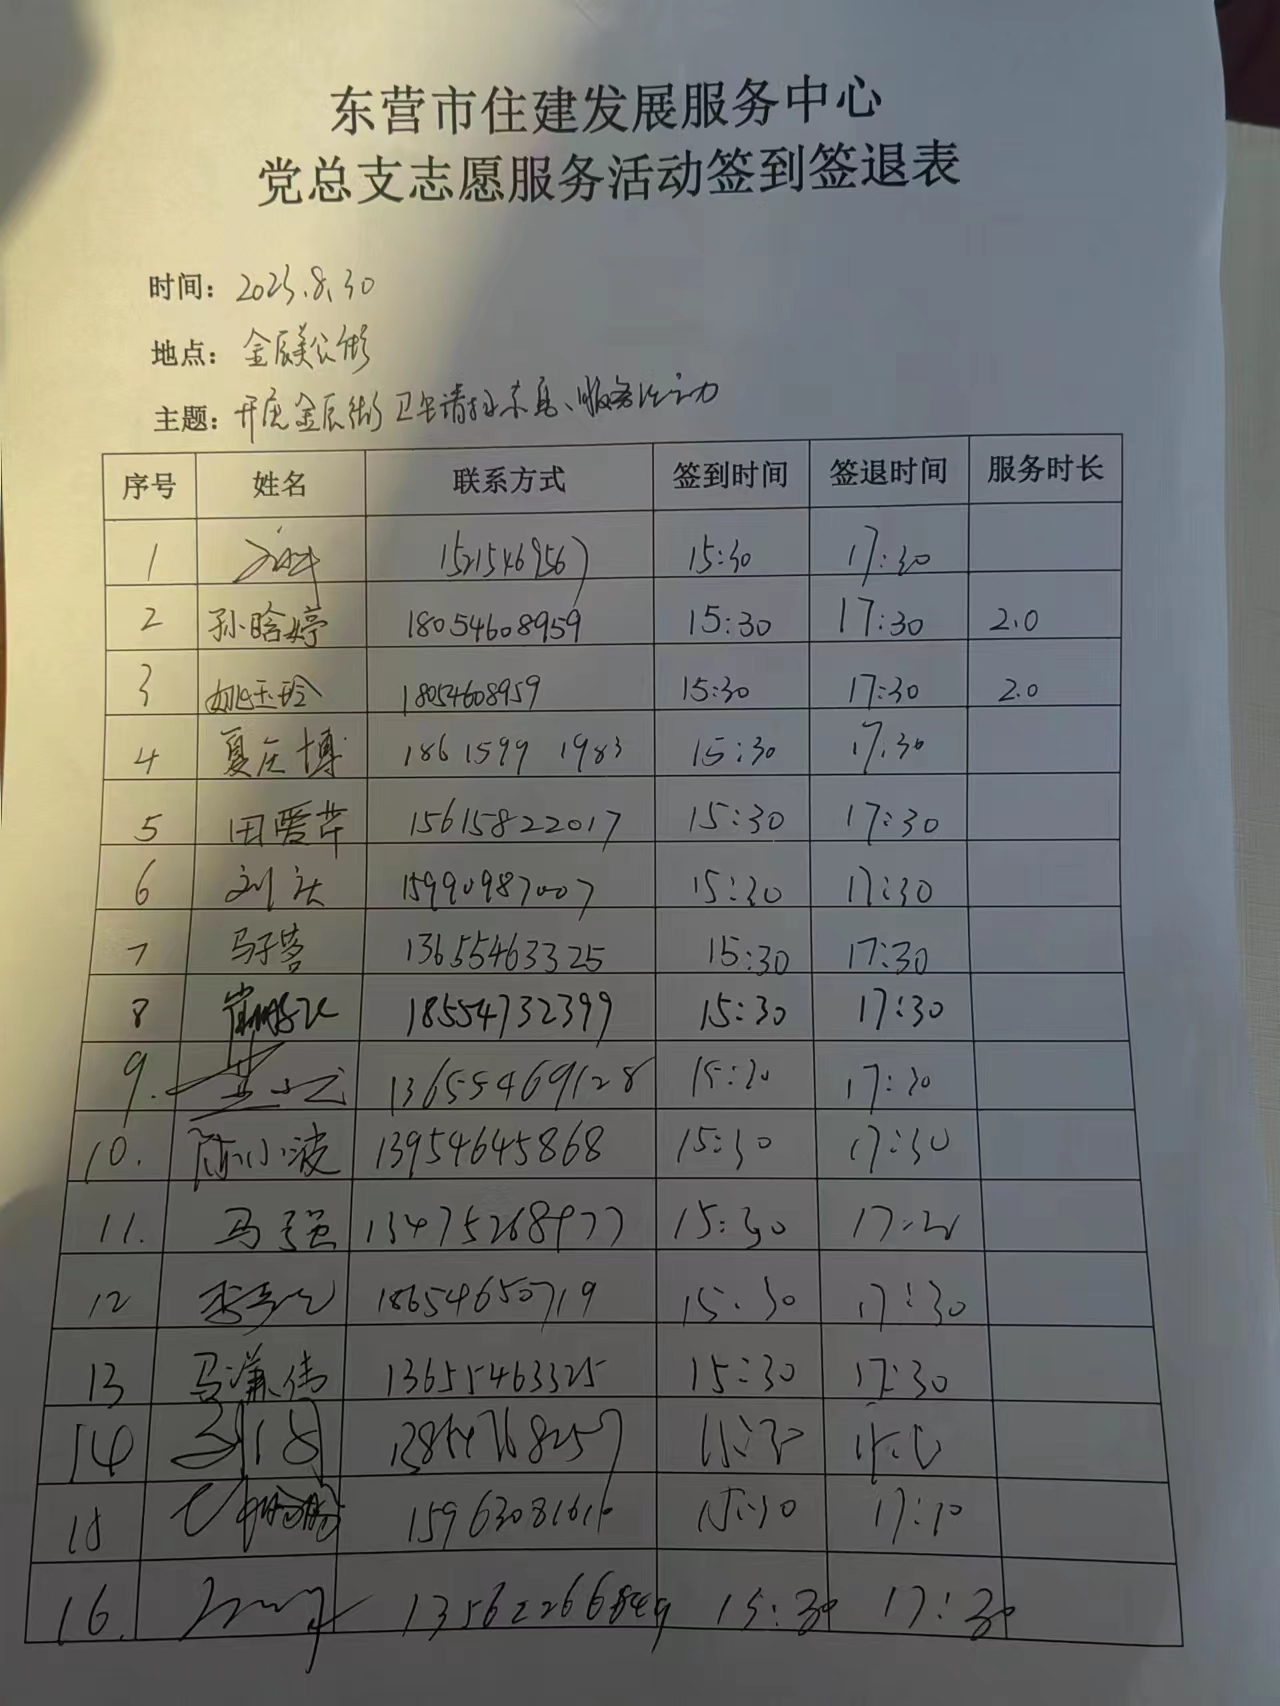 东营市住建发展服务中心
党总支志愿服务活动签到签退表
时间： 2025.8.30
地点： 金辰
主题： 开展金辰街卫生清扫 服务
序号 姓名 联系方式 签到时间 签退时间 服务时长
1 15:30 17:30
2 孙晗婷 18054608959 15:30 17:30 2.0
3 姚玉玲 18054608959 15:30 17:30 2.0
4 夏庆博 186 1599 1983 15:30 17:30
5 田爱芹 15615822017 15:30 17:30
6 刘 15990987007 15:30 17:30
7 13655463325 15:30 17:30
8 18554732399 15:30 17:30
9. 13655469128 15:30 17:30
10. 陈小波 13954645868 15:30 17:30
11. 马强 13475268977 15:30
12 18654650719 15:30 17:30
13 马谦伟 13655463325 15:30 17:30
14
15 15:30
16. 13562266849 15:30 17:30